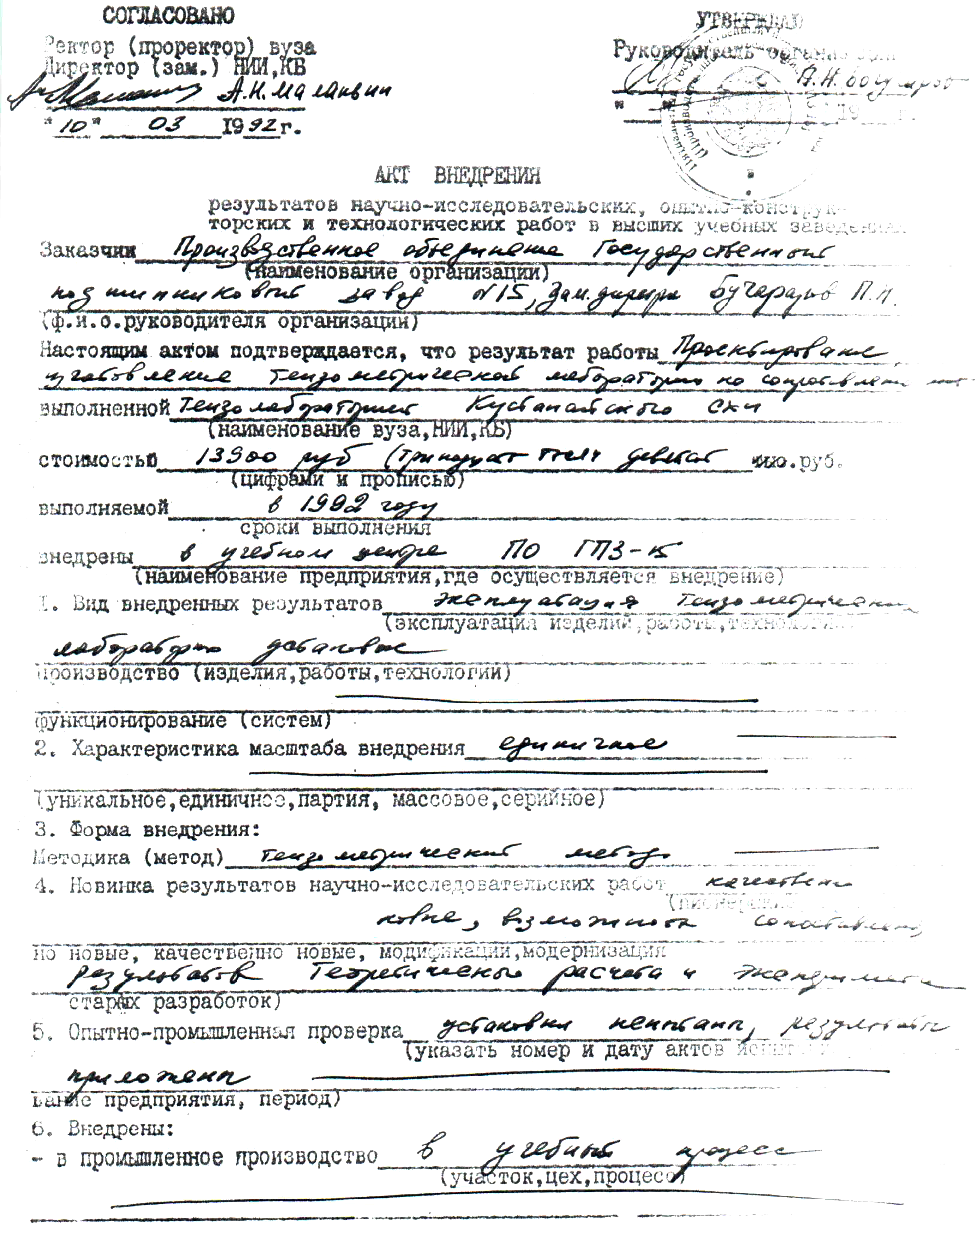 СОГЛАСОВАНО
УТВЕРЖДАЮ
Ректор (проректор) вуза
Руководитель организации
Директор (зам.) НИИ,КБ
А.И.Маланьин
"10" 03 1992г.
АКТ ВНЕДРЕНИЯ
результатов научно-исследовательских, опытно-конструк-
торских и технологических работ в высших учебных заведениях
Заказчик Производственное объединение Государственный
(наименование организации)
подшипниковый завод №15, Зам.директ Бучарапов П.И.
(ф.и.о.руководителя организации)
Настоящим актом подтверждается, что результат работы Проектирование,
изготовление тензометрической лаборатории по
выполненной Тензолабораторией Кустанайского СХИ
(наименование вуза,НИИ,КБ)
стоимостью 13900 руб (тринадцат тыс девятсот руб.
(цифрами и прописью)
выполняемой в 1992 году
сроки выполнения
внедрены в учебном центре ПО ГПЗ-15
(наименование предприятия,где осуществляется внедрение)
1. Вид внедренных результатов эксплуатация тензометрической
(эксплуатация изделий,работы,технологии
лаборатории установки
производство (изделия,работы,технологии)
функционирование (систем)
2. Характеристика масштаба внедрения единичное
(уникальное,единичное,партия, массовое,серийное)
3. Форма внедрения:
Методика (метод) тензометрический метод
4. Новинка результатов научно-исследовательских работ качествен
(пионерские
новые, возможность сопоставлен
но новые, качественно новые, модификации,модернизация
результатов теоретического расчета и эксперимента
старых разработок)
5. Опытно-промышленная проверка установки испытаны, результаты
(указать номер и дату актов испыт
приложены
вание предприятия, период)
6. Внедрены:
- в промышленное производство в учебный процесс
(участок,цех,процесс)